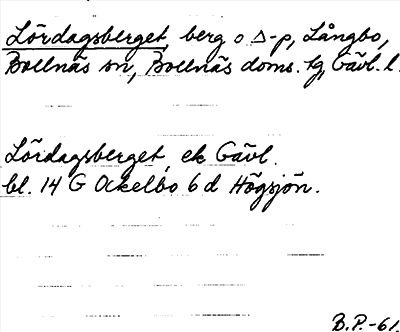 Lördagsberget, berg o Δ-p, Långbo,
Bollnäs sn, Bollnäs doms. tg, Gävl. l.
Lördagsberget, ek Gävl.
bl. 14 G Ockelbo 6 d Högsjön.
B.P.-61.